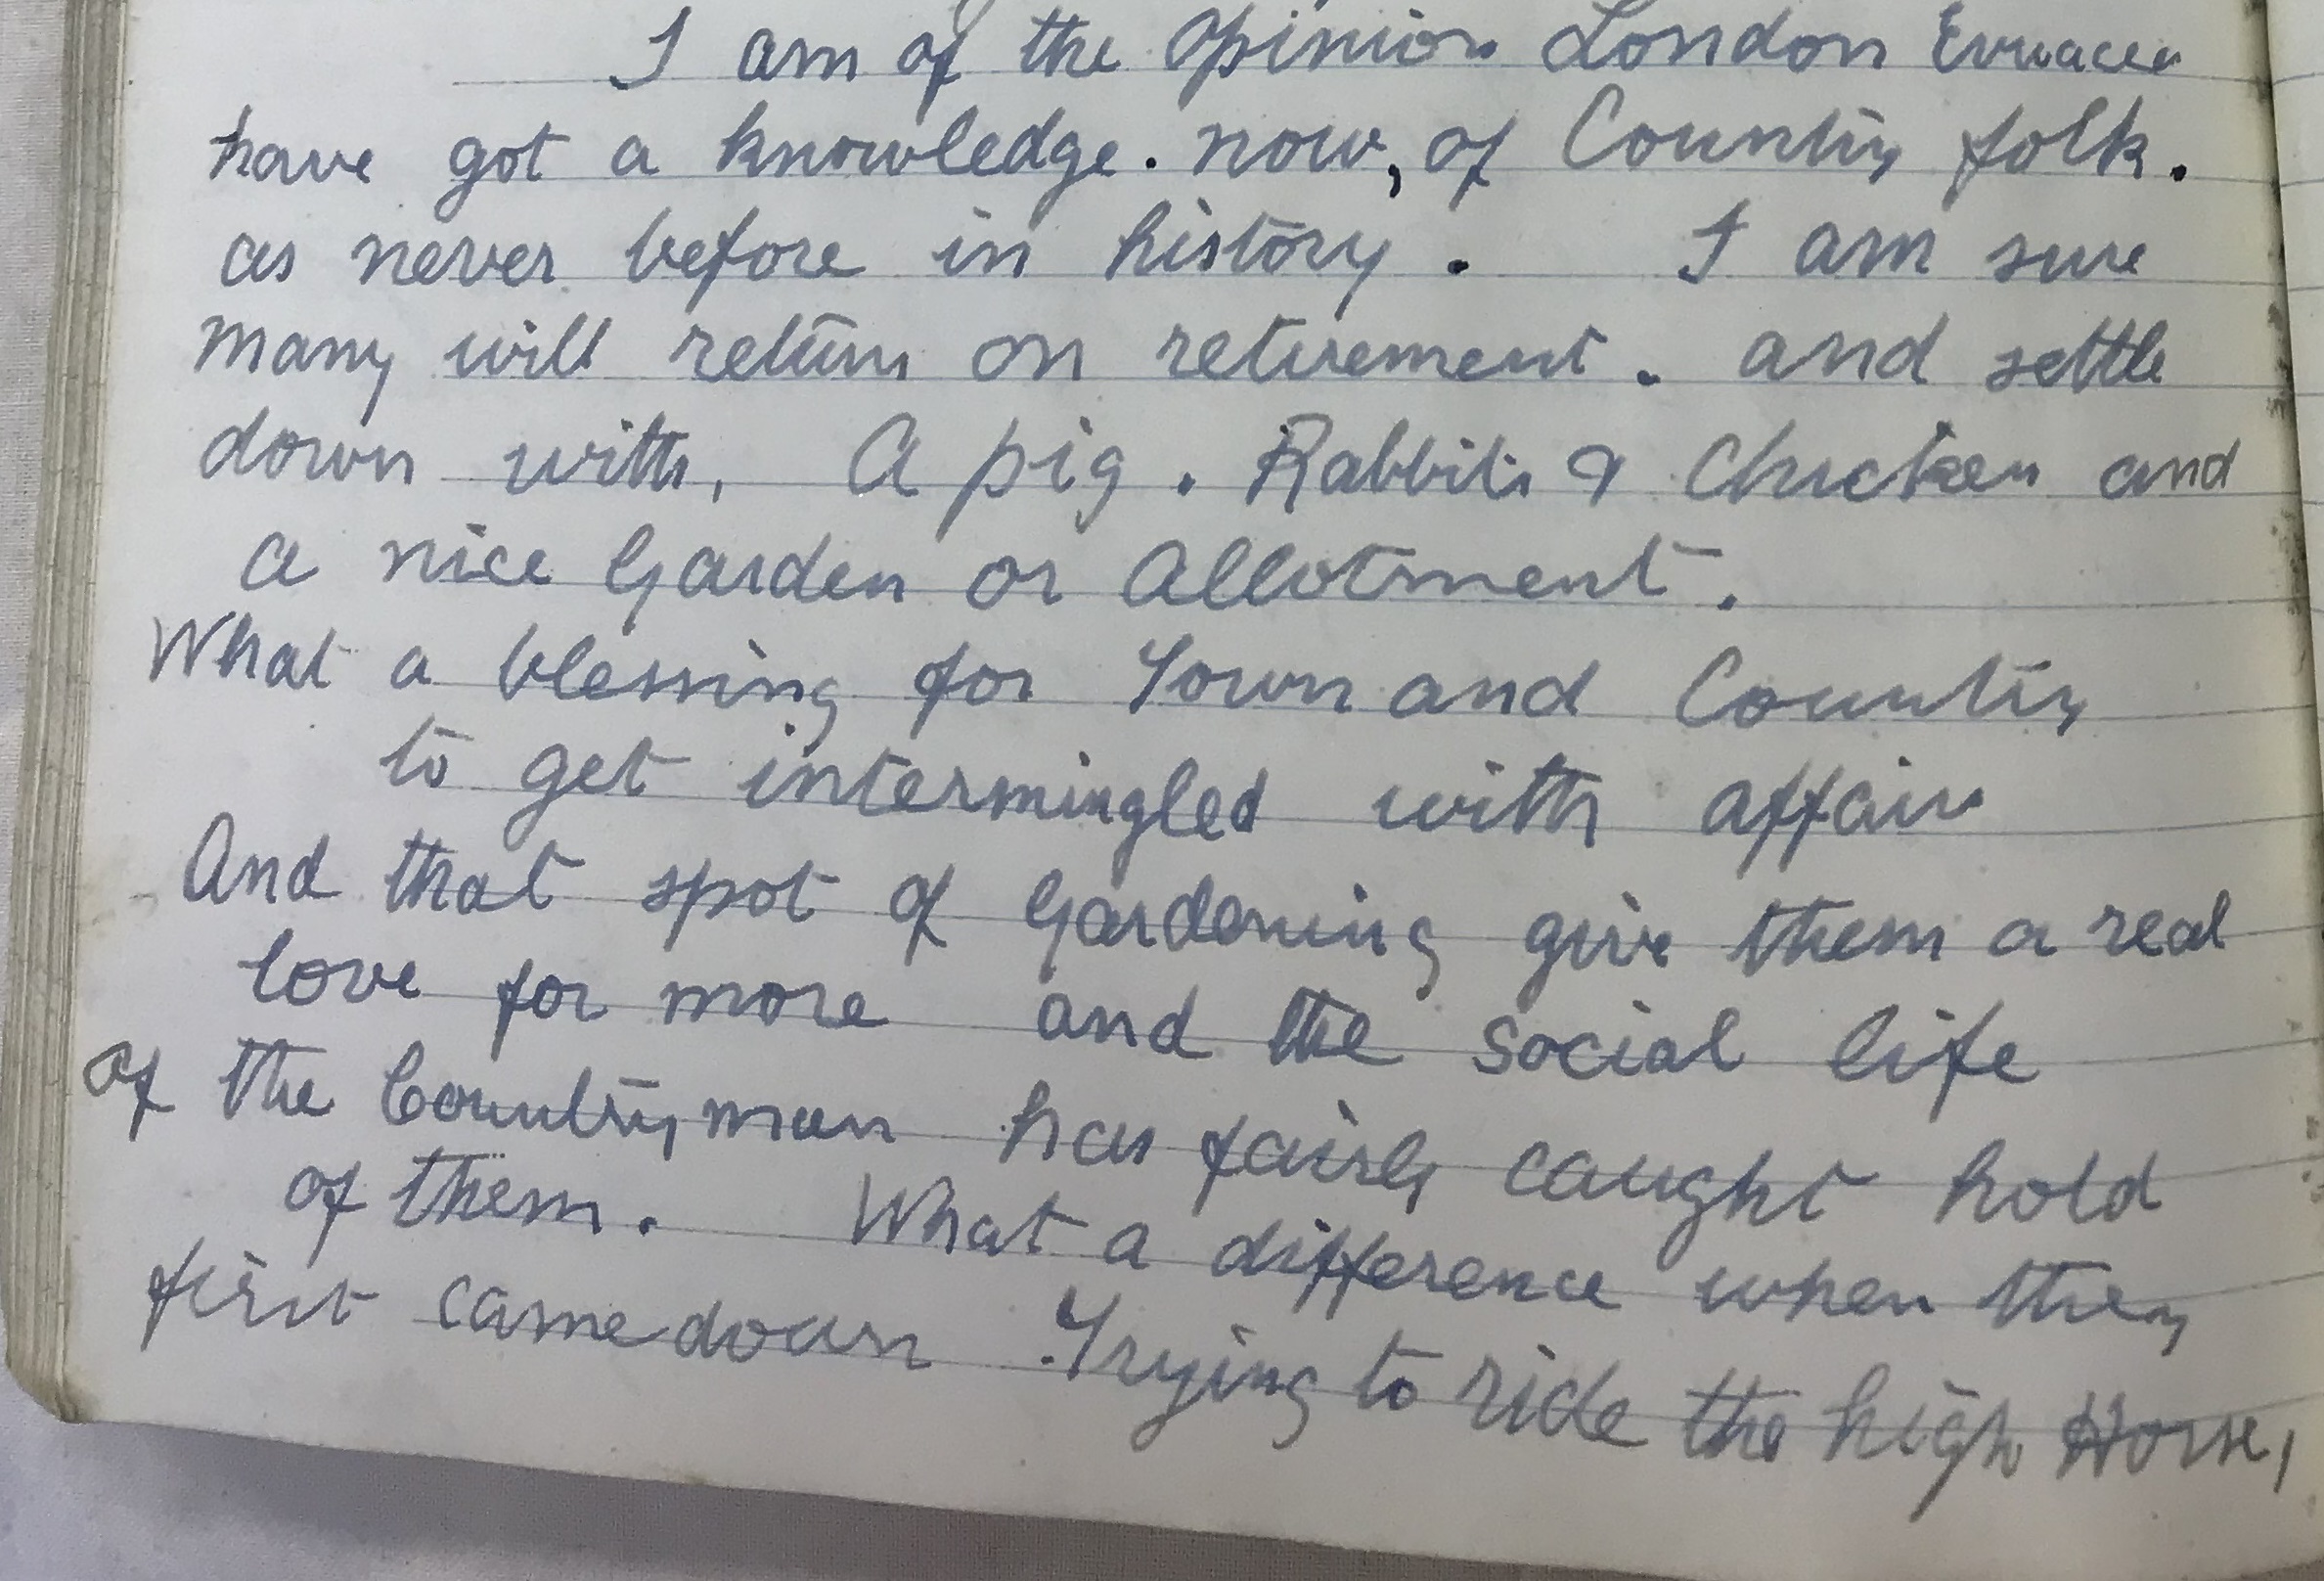 I am of the Opinion London Evvacees
have got a knowledge. now, of Country folk.
as never before in history. I am sure
many will return on retirement. and settle
down with, A pig. Rabbits & Chicken and
a nice Garden or Allotment.
What a blessing for Town and Country
to get intermingled with affairs
And that spot of Gardening give them a real
love for more and the social life
of the Countryman has fairly caught hold
of them. What a difference when they
first came down. Trying to ride the high Horse,